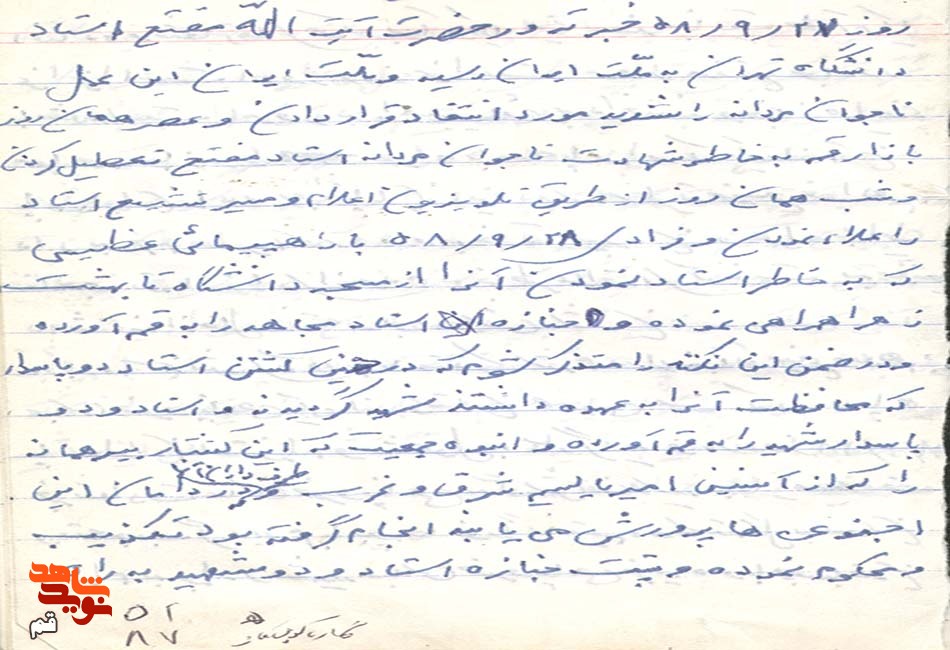 روز ۲۷/۹/۵۸ خبر ترور حضرت آیت الله مفتح استاد
دانشگاه تهران به ملّت ایران رسید و ملّت ایران این عمل
ناجوان مردانه را شدید مورد انتقاد قرار دادن و عصر همان روز
بازار قم به خاطر شهادت ناجوان مردانه استاد مفتح تعطیل کردن
و شب همان روز از طریق تلویزیون اعلام و مسیر تشییع استاد
را اعلام نمودن و فردای ۲۸/۹/۵۸ با راهپیمائی عظیمی
که به خاطر استاد نمودن آنرا از مسجد دانشگاه تا بهشت
زهرا همراهی نموده و جنازه استاد مجاهد را به قم آورده
و در ضمن این نکته را متذکر شوم که در حین کشتن استاد دو پاسدار
که محافظت آنرا به عهده داشتند شهید گردیدند و استاد و دو
پاسدار شهید را به قم آورده و انبوه جمعیت که این کشتار بیرحمانه
را که از آستین امپریالیسم شرق و غرب و در دامان این
اجنبی ها پرورش می یابند انجام گرفته بود تکذیب
و محکوم نموده و جنازه استاد و دو شهید را
نوید شاهد
قم
۵۱
۸۷